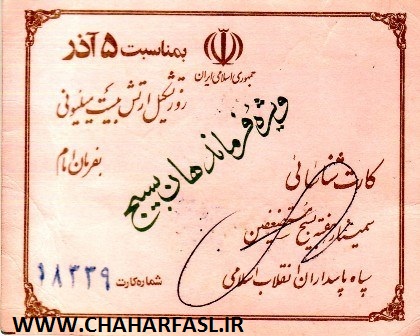 جمهوری اسلامی ایران
بمناسبت ۵ آذر
روز تشکیل ارتش بیست میلیونی
بفرمان امام
ویژه فرماندهان بسیج
کارت شناسائی
سمینار هفته بسیج مستضعفین
سپاه پاسداران انقلاب اسلامی
شماره کارت ۱۸۳۳۹
WWW.CHAHARFASL.IR